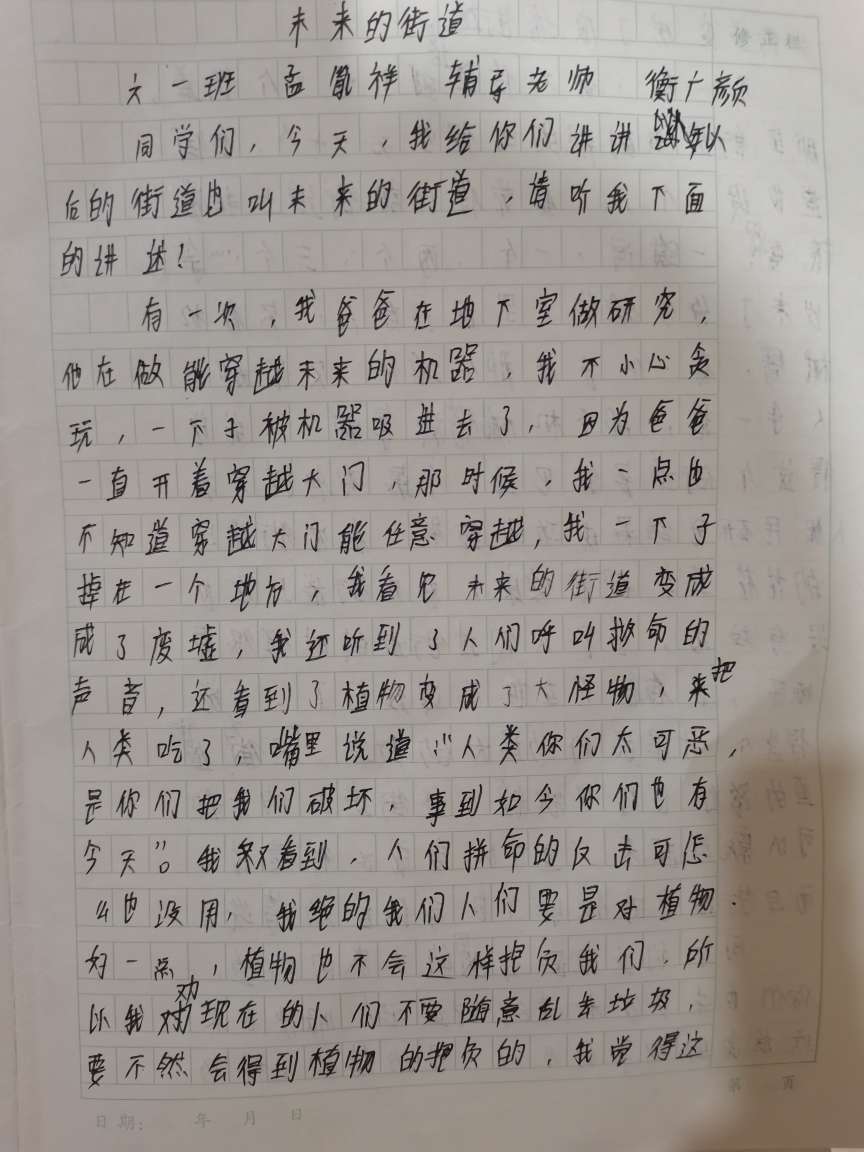 未来的街道
修正栏
六一班 孟胤祥 辅导老师 衡广颜
同学们，今天，我给你们讲讲 年以
后的街道也叫未来的街道，请听我下面
的讲述！
有一次，我爸爸在地下室做研究，
他在做能穿越未来的机器，我不小心贪
玩，一下子被机器吸进去了，因为爸爸
一直开着穿越大门，那时候，我一点也
不知道穿越大门能任意穿越，我一下子
掉在一个地方，我看见未来的街道变成
成了废墟，我还听到了人们呼叫救命的
声音，还看到了植物变成了大怪物，来把
人类吃了，嘴里说道：“人类你们太可恶，
是你们把我们破坏，事到如今你们也有
今天”。我又看到，人们拼命的反击可怎
么也没用，我绝的我们人们要是对植物
好一点，植物也不会这样抱负我们，所
以我劝现在的人们不要随意乱丢垃圾，
要不然会得到植物的抱负的，我觉得这
第 页
日期： 年 月 日